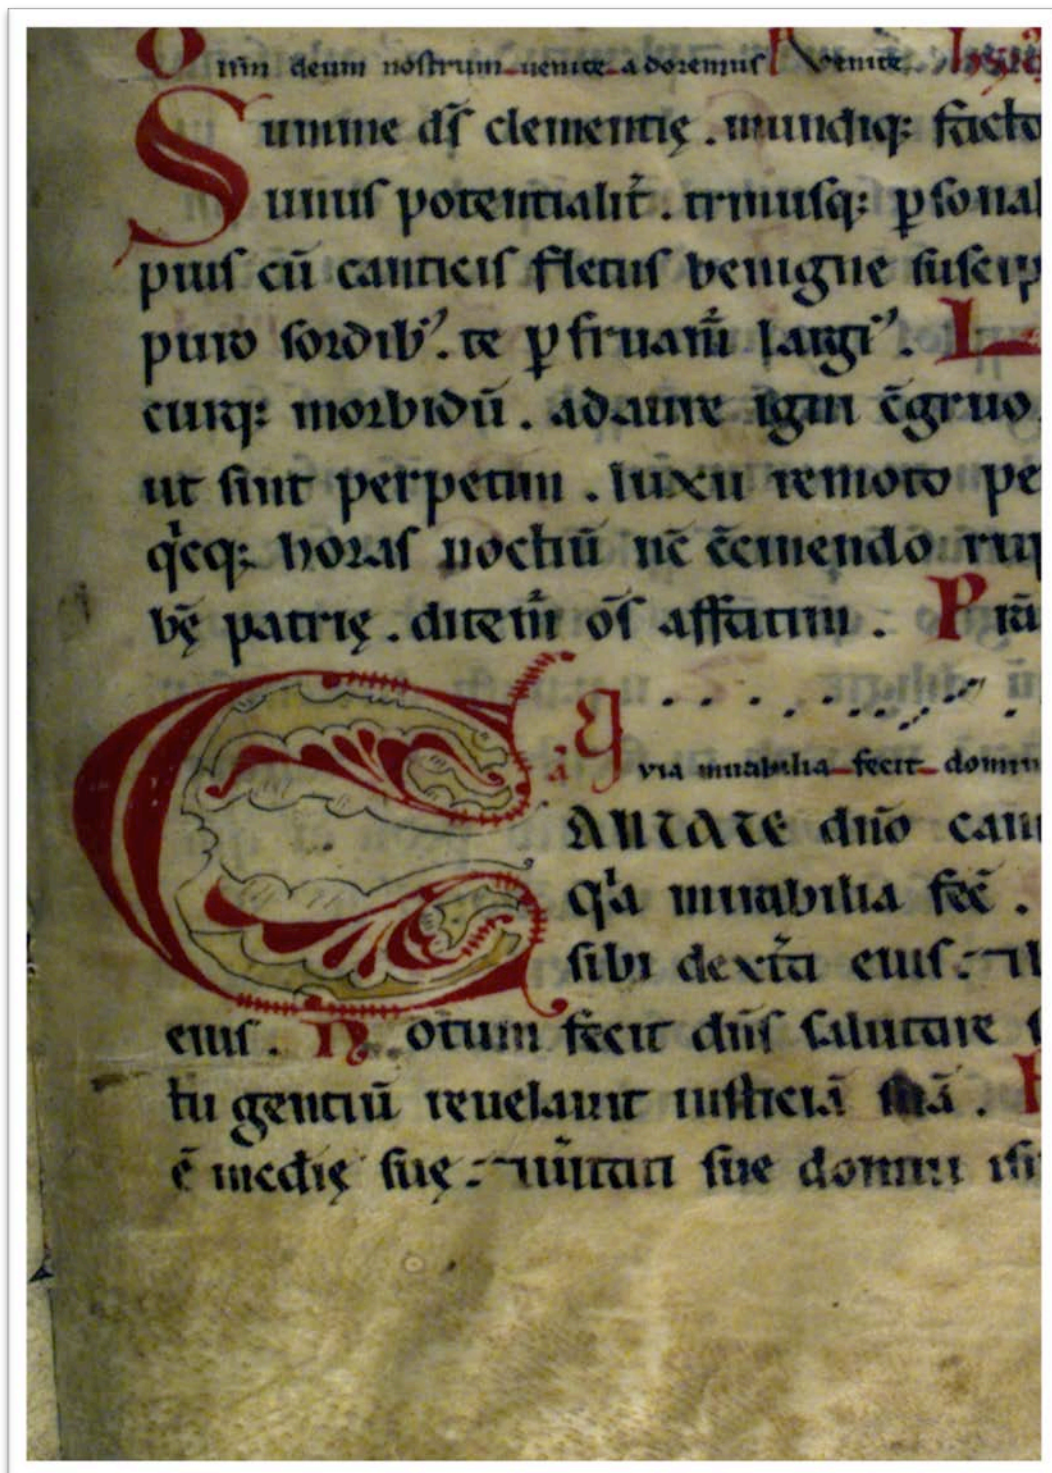 Dominum deum nostrum uenite adoremus Venite
Summe ds̄ clementię . mundiq: facto
unus potentialit̄ . trinusq: ꝑsonal
pius cū canticis fletus benigne suscip
puro sordib' . te ꝑfruam̄ largi' . L
eurq: morbidū . adaure igni ēgruo
ut sint perpetim . luxu remoto pe
qͥcq: horas noctiū nē ēcinendo rup
bę patrię . ditem̄ os̄ affatim . P rā
a quia mirabilia fecit domin
CANTATE dn̄o can
Qͥa mirabilia fec̄ .
sibi dext̄a eius :
eius . Notum fecit dn̄s salutare s
tu gentiū reuelauit iusticiā suā .
suę : ⁊ ueritati sue domui isr